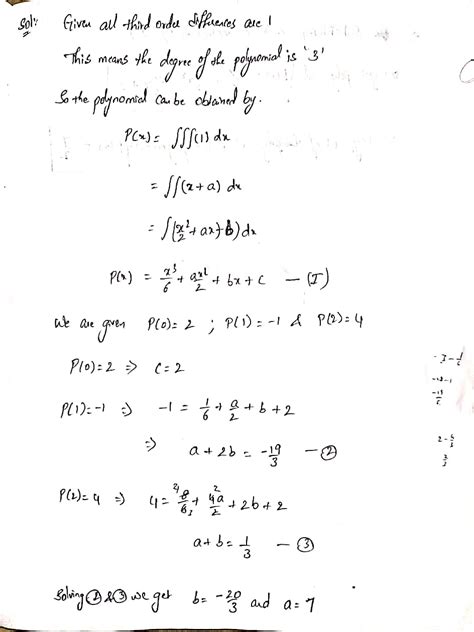 Sol:
Given all third order differences are 1
This means the degree of the polynomial is '3'
So the polynomial can be obtained by.
P(x) = ∫∫∫(1) dx
= ∫∫(x+a) dx
= ∫(x²/2 + ax + b) dx
P(x) = x³/6 + ax²/2 + bx + c — (I)
We are given P(0)=2 ; P(1)=-1 & P(2)=4
P(0)=2 => c=2
P(1)=-1 => -1 = 1/6 + a/2 + b + 2
=> a + 2b = -19/3 — ②
P(2)=4 => 4 = 8/6 + 4a/2 + 2b + 2
a+b = 1/3 — ③
Solving ② & ③ we get b = -20/3 and a = 7